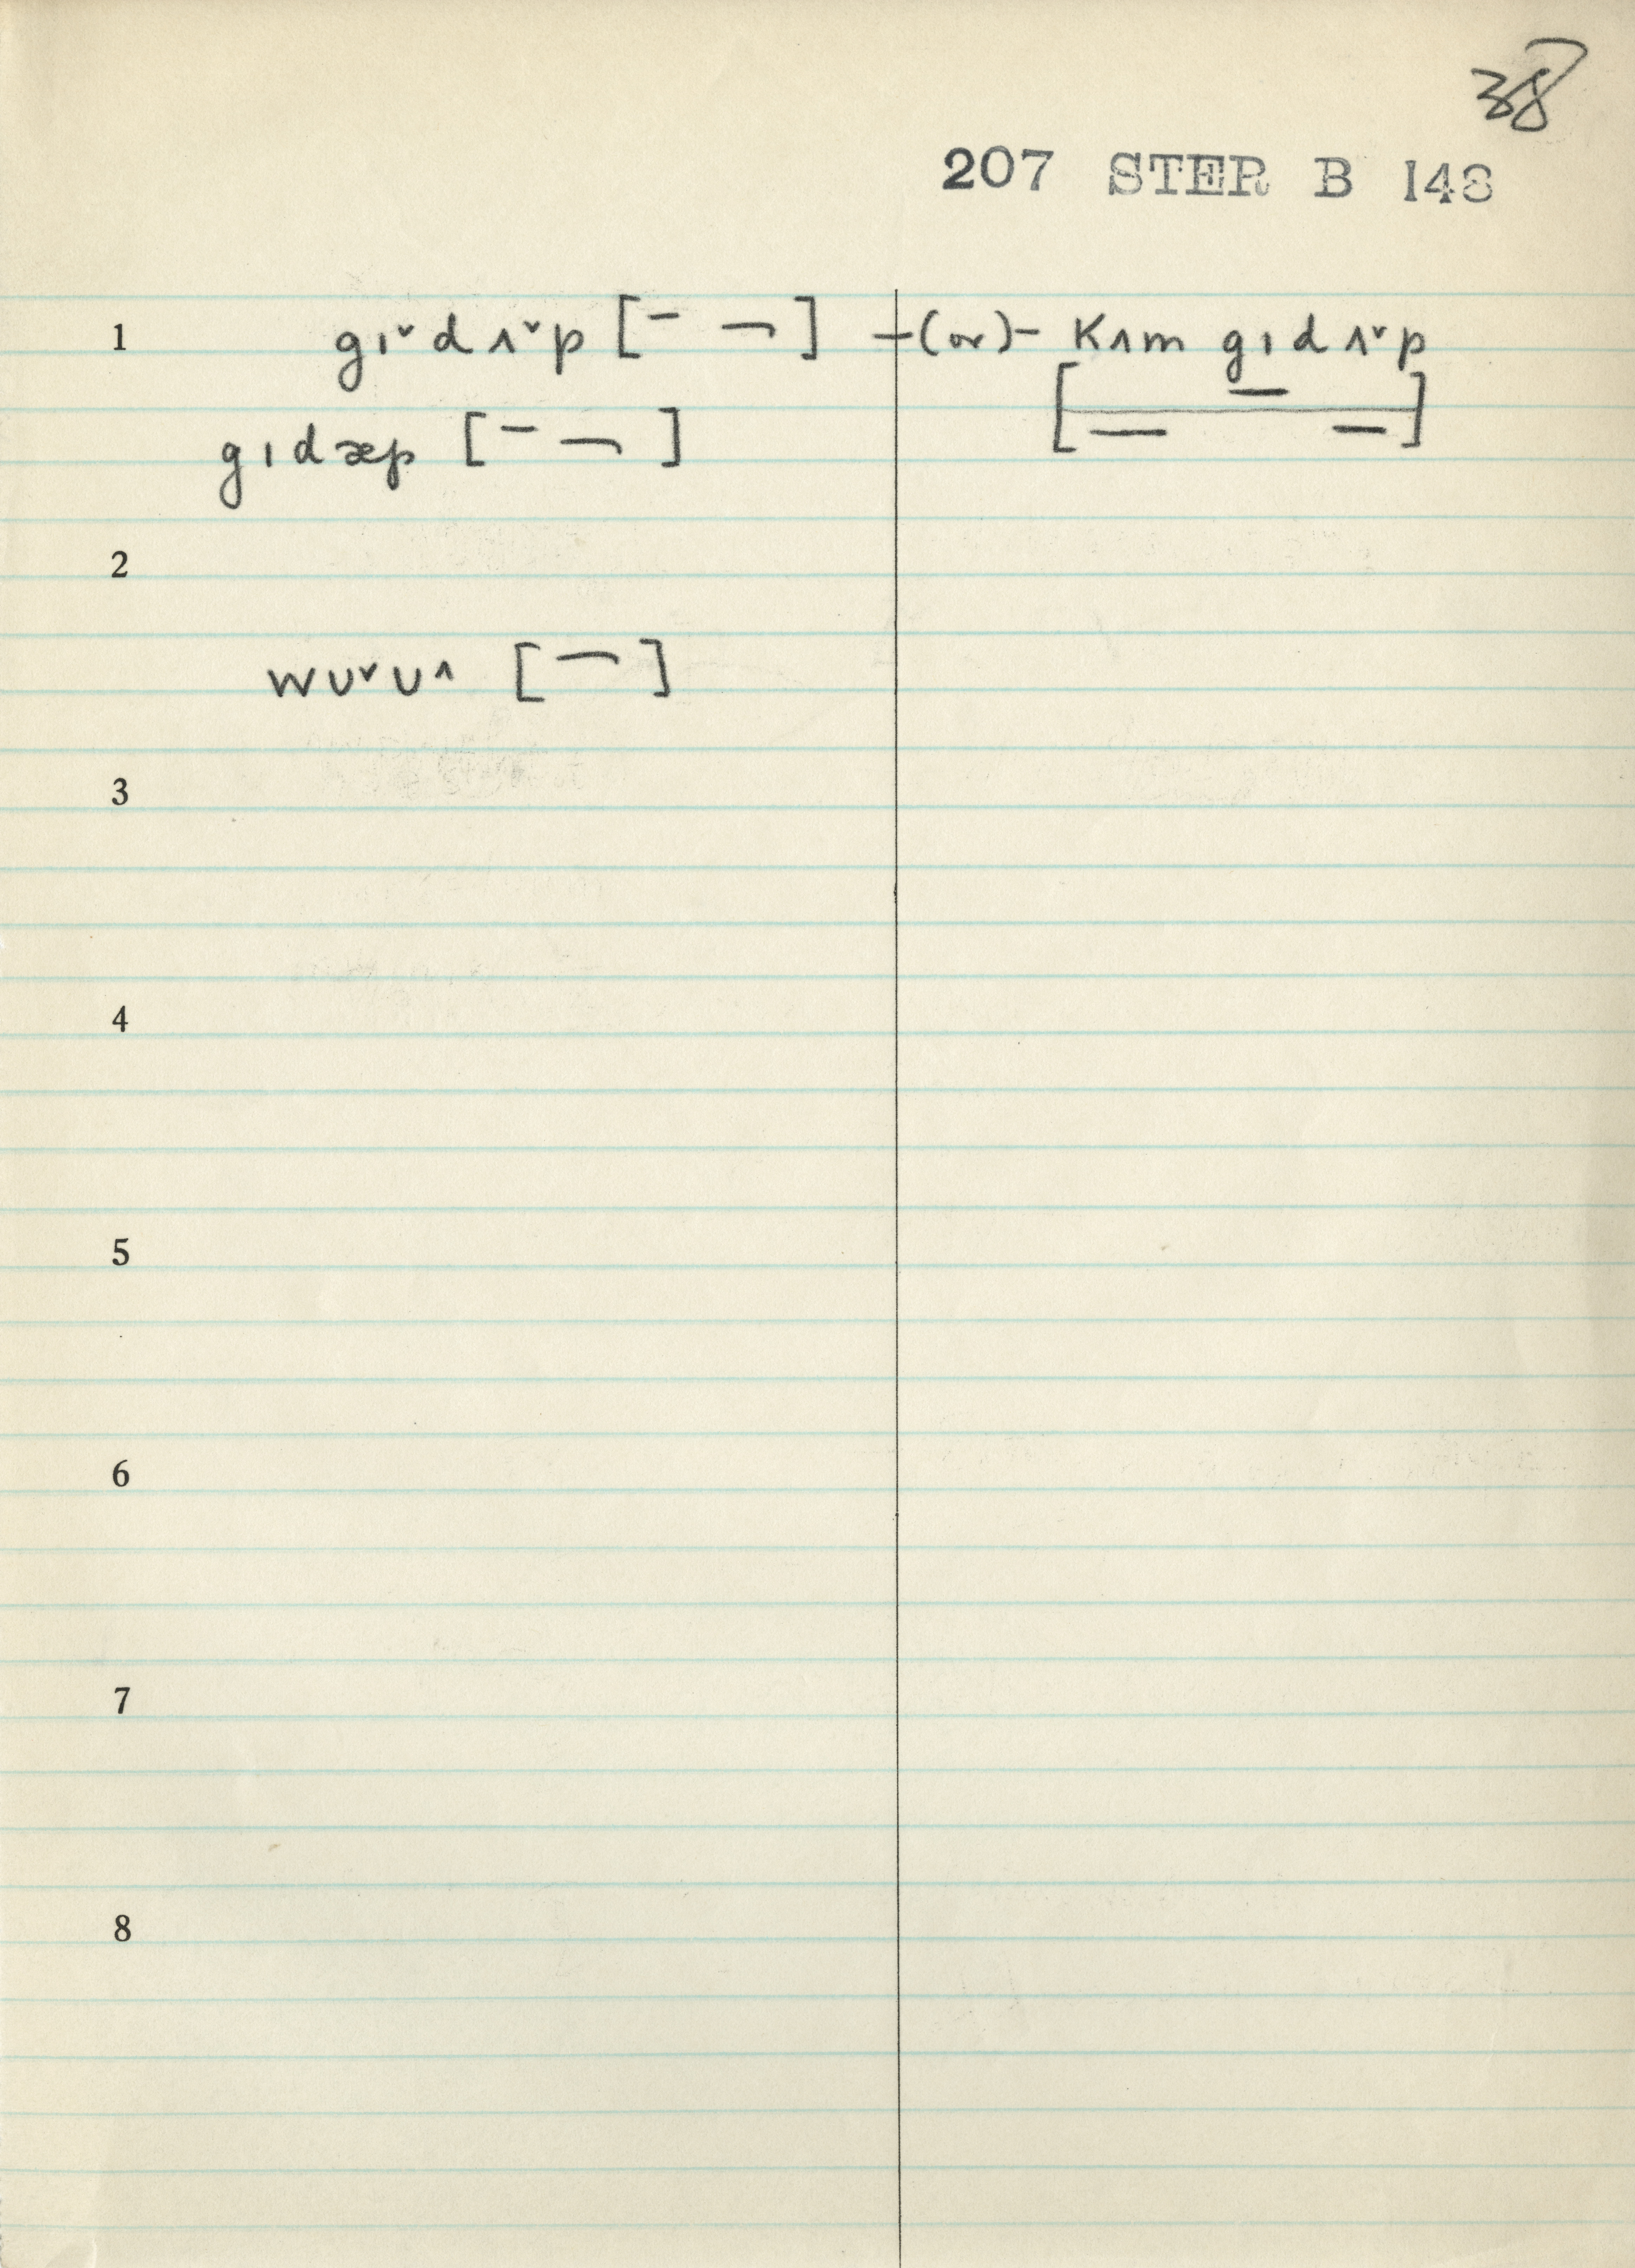 38
207 STER B 148
1 gɪ˅dʌ˅p [¯ ¬] -(or)- Kʌm gɪdʌ˅p
gɪdæp [¯ ¬] [_ ¯ _]
2
wʊ˅ʊ˄ [¬]
3
4
5
6
7
8